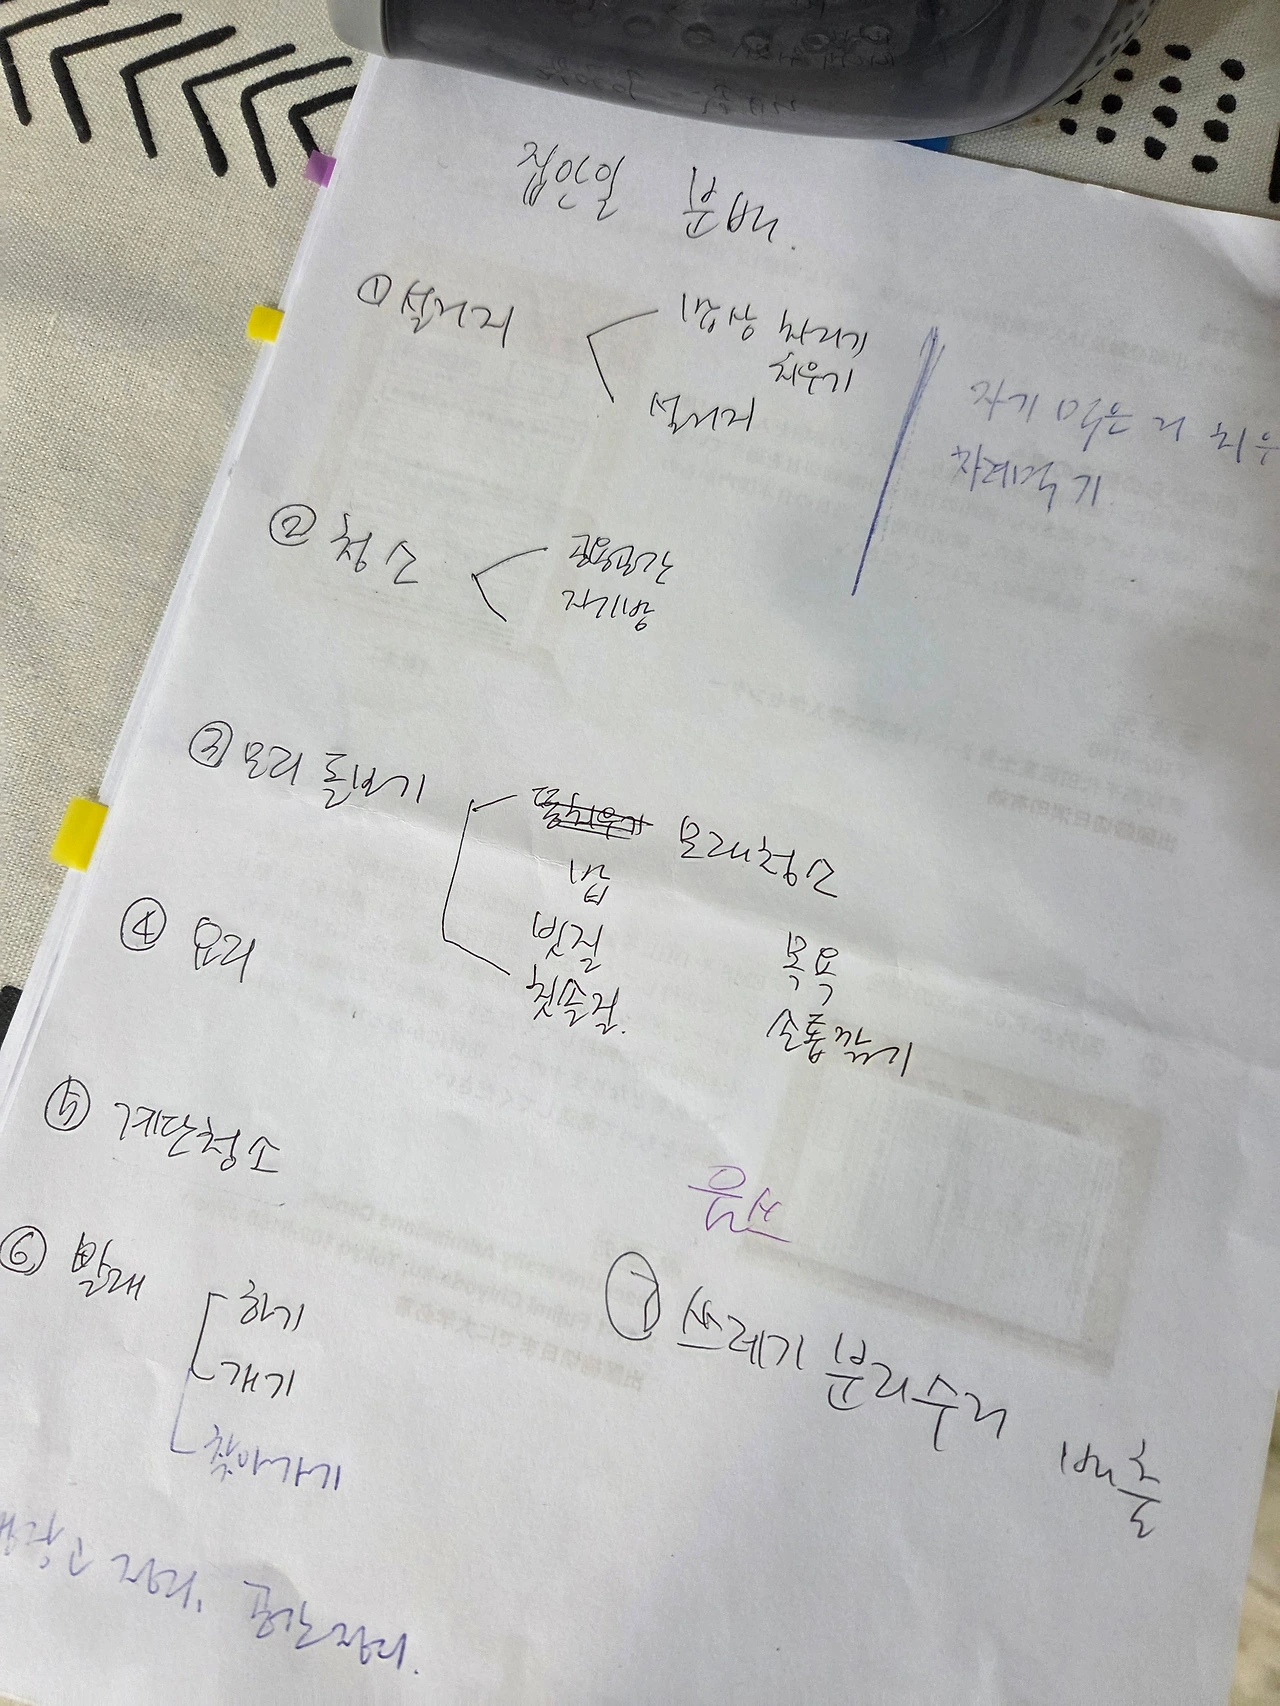 집안일 분배.
① 설거지
밥상 차리기
치우기
설거지
자기 먹은 거 치우
차려먹기
② 청소
공용공간
자기방
③ 모리 돌보기
똥치우기 모래청소
밥
빗질
칫솔질.
목욕
손톱깎기
④ 요리
⑤ 계단청소
⑥ 빨래
하기
개기
찾아가기
음쓰
⑦ 쓰레기 분리수거 배출
정리.